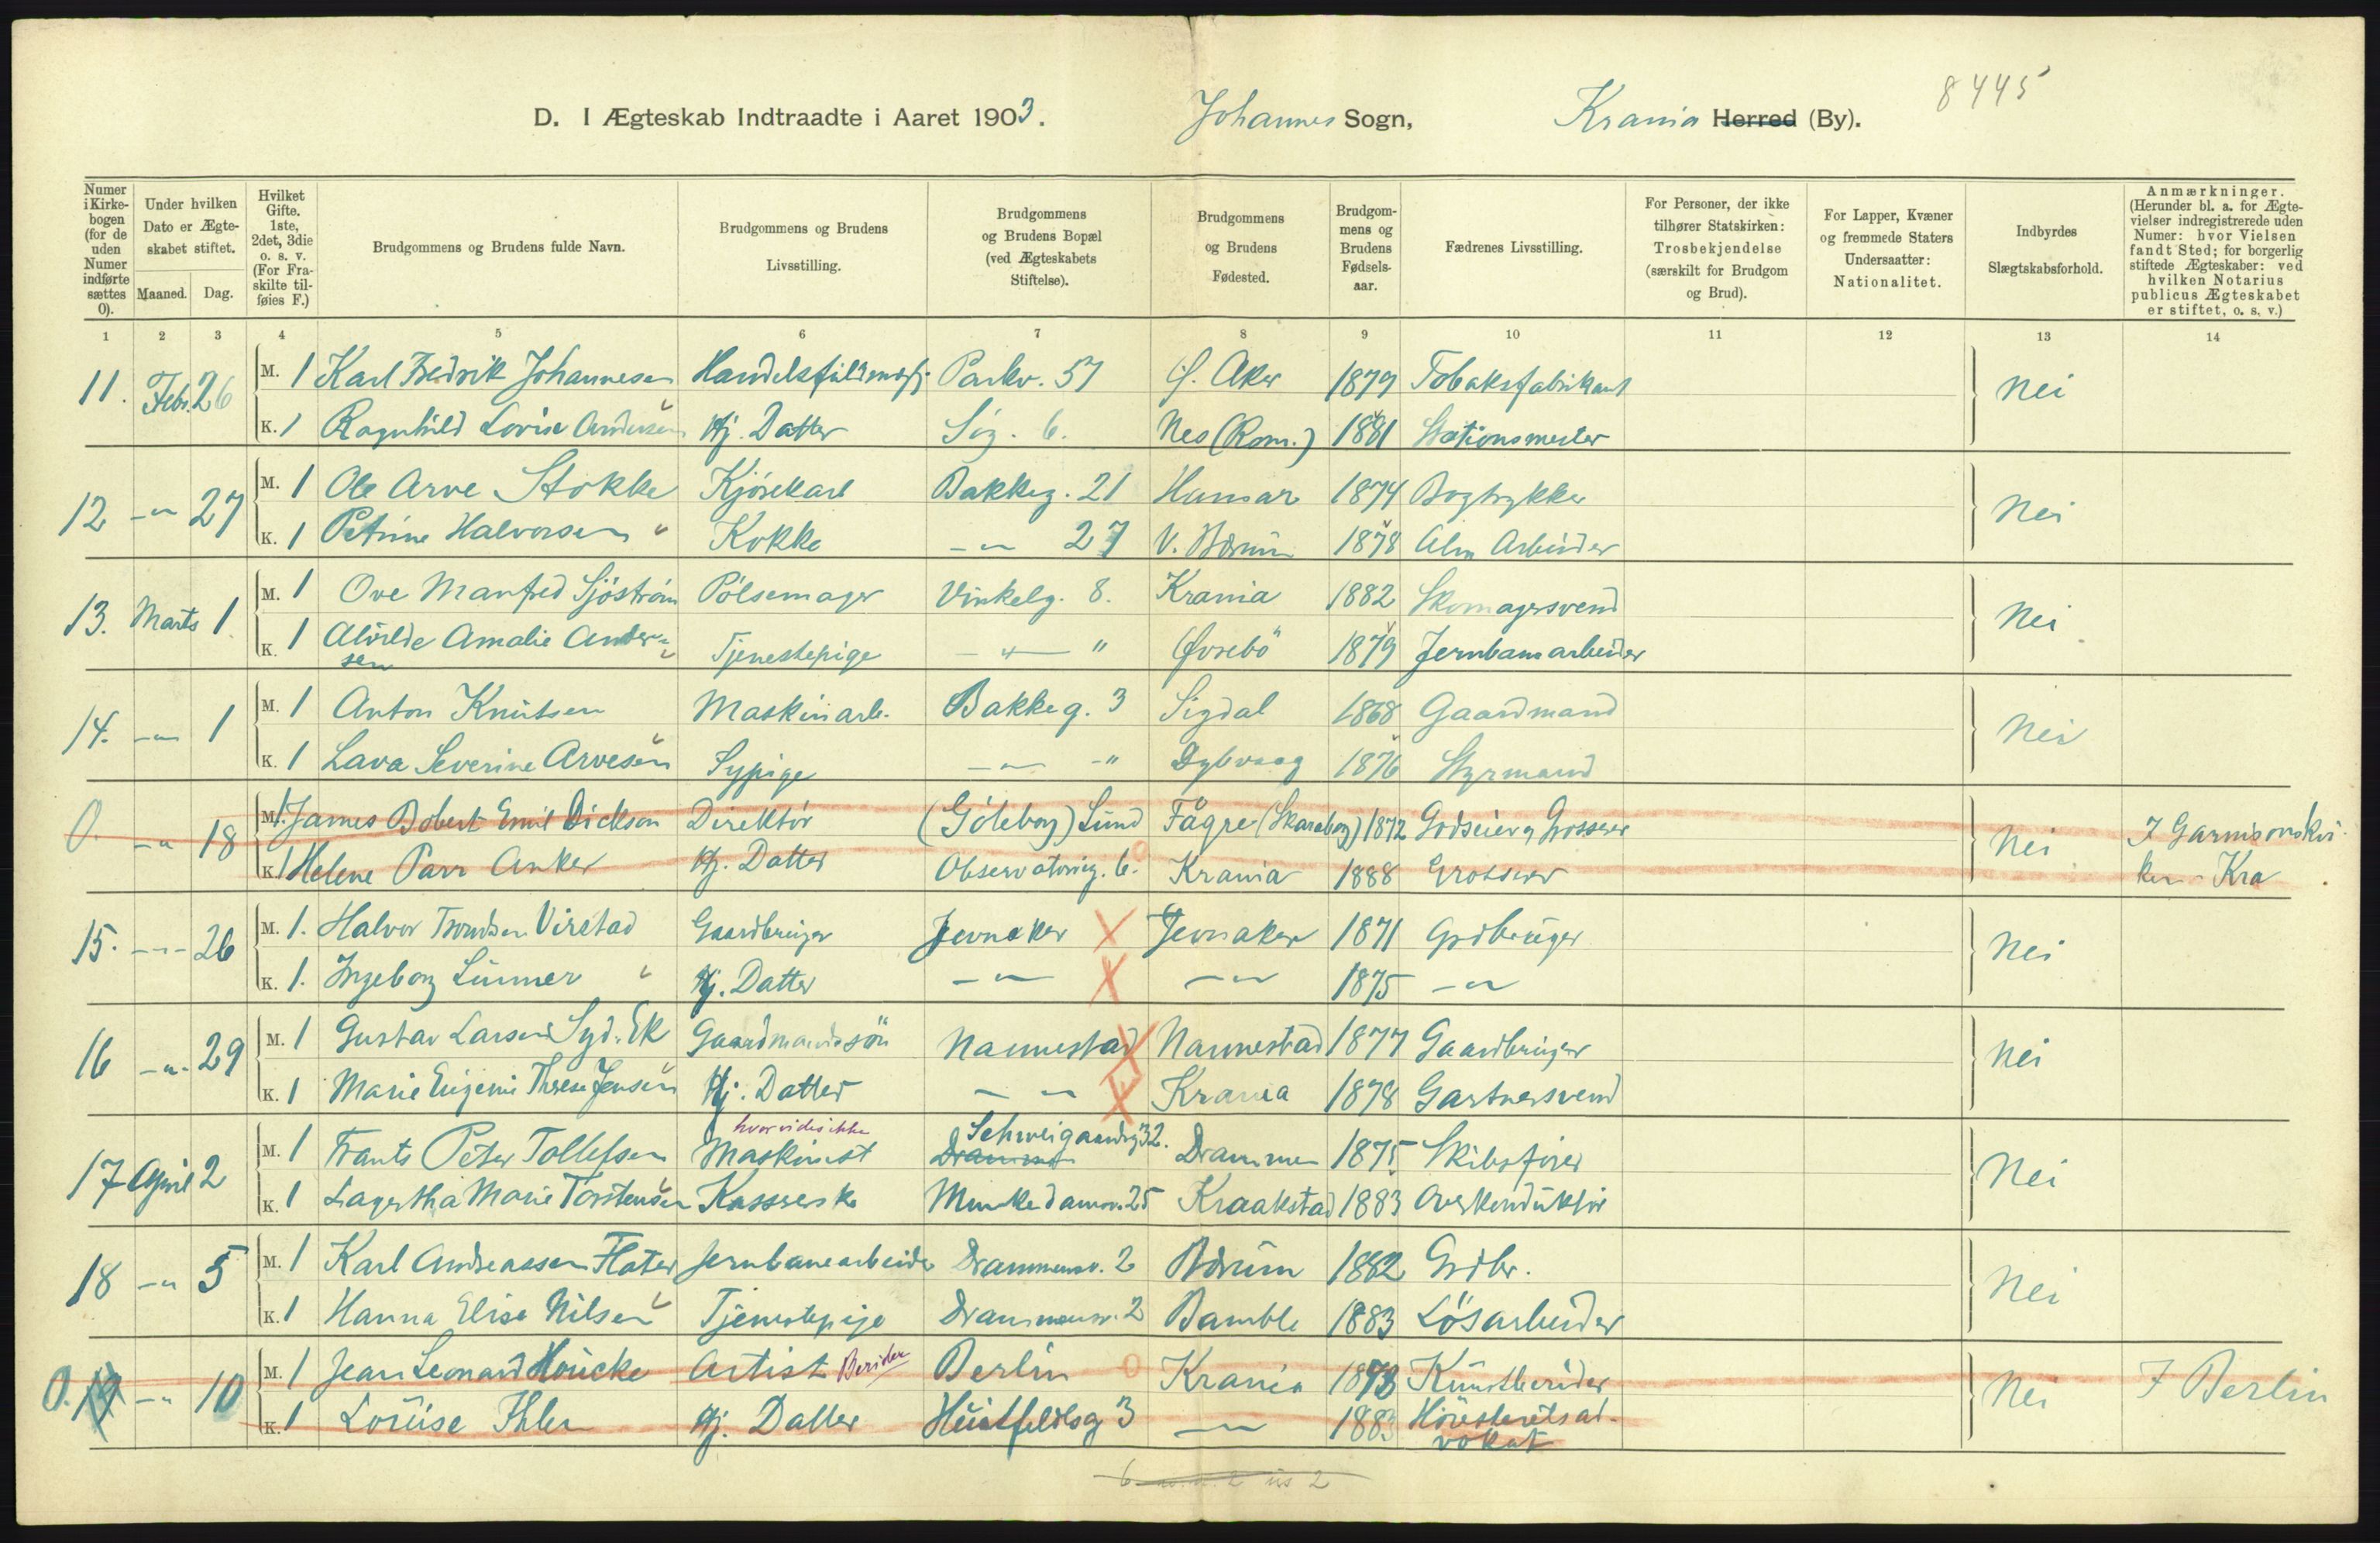 8445
D. I Ægteskab Indtraadte i Aaret 1903. Johannes Sogn, Krania Herred (By).
Numer i Kirkebogen (for de uden Numer indførte sættes 0).
Under hvilken Dato er Ægteskabet stiftet.
Maaned. Dag.
Hvilket Gifte. 1ste, 2det, 3die o. s. v. (For Fraskilte tilføies F.)
Brudgommens og Brudens fulde Navn.
Brudgommens og Brudens Livsstilling.
Brudgommens og Brudens Bopæl (ved Ægteskabets Stiftelse).
Brudgommens og Brudens Fødested.
Brudgommens og Brudens Fødselsaar.
Fædrenes Livsstilling.
For Personer, der ikke tilhører Statskirken: Trosbekjendelse (særskilt for Brudgom og Brud).
For Lapper, Kvæner og fremmede Staters Undersaatter: Nationalitet.
Indbyrdes Slægtskabsforhold.
Anmærkninger. (Herunder bl. a. for Ægtevielser indregistrerede uden Numer: hvor Vielsen fandt Sted; for borgerlig stiftede Ægteskaber: ved hvilken Notarius publicus Ægteskabet er stiftet, o. s. v.)
1 2 3 4 5 6 7 8 9 10 11 12 13 14
11. Febr. 26 M. 1 Karl Fredrik Johannesen Parkv. 57 Aker 1879 Tobaksfabrikant Nei
K. 1 Ragnhild Lovise Andersen Hj. Datter 6. Nes (Rom.) 1881 Stationsmester
12 -"- 27 M. 1 Ole Arve Stokke Kjörekarl Bakkeg. 21 Hamar 1874 Bogtrykker Nei
K. 1 Petrine Halvorsen Kokke -"- 27 V. Bærum 1878 Alm Arbeider
13. Marts 1 M. 1 Ove Manfred Sjöström Pölsemager Vinkelg. 8. Krania 1882 Skomagersvend Nei
K. 1 Alvilde Amalie Andersen Tjenestepige -"- " Øvrebö 1879 Jernbanearbeider
14. -"- 1 M. 1 Anton Knutsen Maskinarb. Bakkeg. 3 Sigdal 1868 Gaardmand Nei
K. 1 Lava Severine Arvesen Sypige -"- -" Dybvaag 1876 Styrmand
0. -"- 18 M. 1. James Robert Emil Dickson Direktör (Göteborg) Lund Fägre (Skaraborg) 1872 Godseier, Grosserer Nei I Garnisonskir-
K. 1 Helene Parr Anker Hj. Datter Observatorieg. 6. Krania 1888 Grosserer ken - Kra
15. -"- 26 M. 1. Halvor Trondsen Virstad Gaardbruger Jevnaker Jevnaker 1871 Grdbruger Nei
K. 1. Ingeborg Linner Hj. Datter -"- -"- 1875 -"-
16 -"- 29 M. 1 Gustav Larsen Syd. Ek Gaardmandssön Nannestad Nannestad 1877 Gaardbruger Nei
K. 1 Marie Eugenie Therese Jensen Hj. Datter -"- Krania 1878 Gartnersvend
hvor vides ikke Schweigaardsg 32.
17 April 2 M. 1 Frants Peter Tollefsen Maskinist Drammen Drammen 1875 Skibsförer Nei
K. 1 Lagertha Marie Torstensen Kassererske Munkedamsv. 25 Kraakstad 1883 Overkonduktör
18 -"- 5 M. 1 Karl Andreassen Flater Jernbanearbeider Drammensv. 2 Bærum 1882 Grdbr. Nei
K. 1 Hanna Elise Nilsen Tjenestepige Drammensv. 2 Bamble 1883 Lösarbeider
0. 19 -"- 10 M. 1 Jean Leonard Houcke Artist Berider Berlin Krania 1873 Kunstberider Nei I Berlin
K. 1 Louise Ihlen Hj. Datter Huitfeldtsg 3 -"- 1883 Höiesteretsad-
vokat